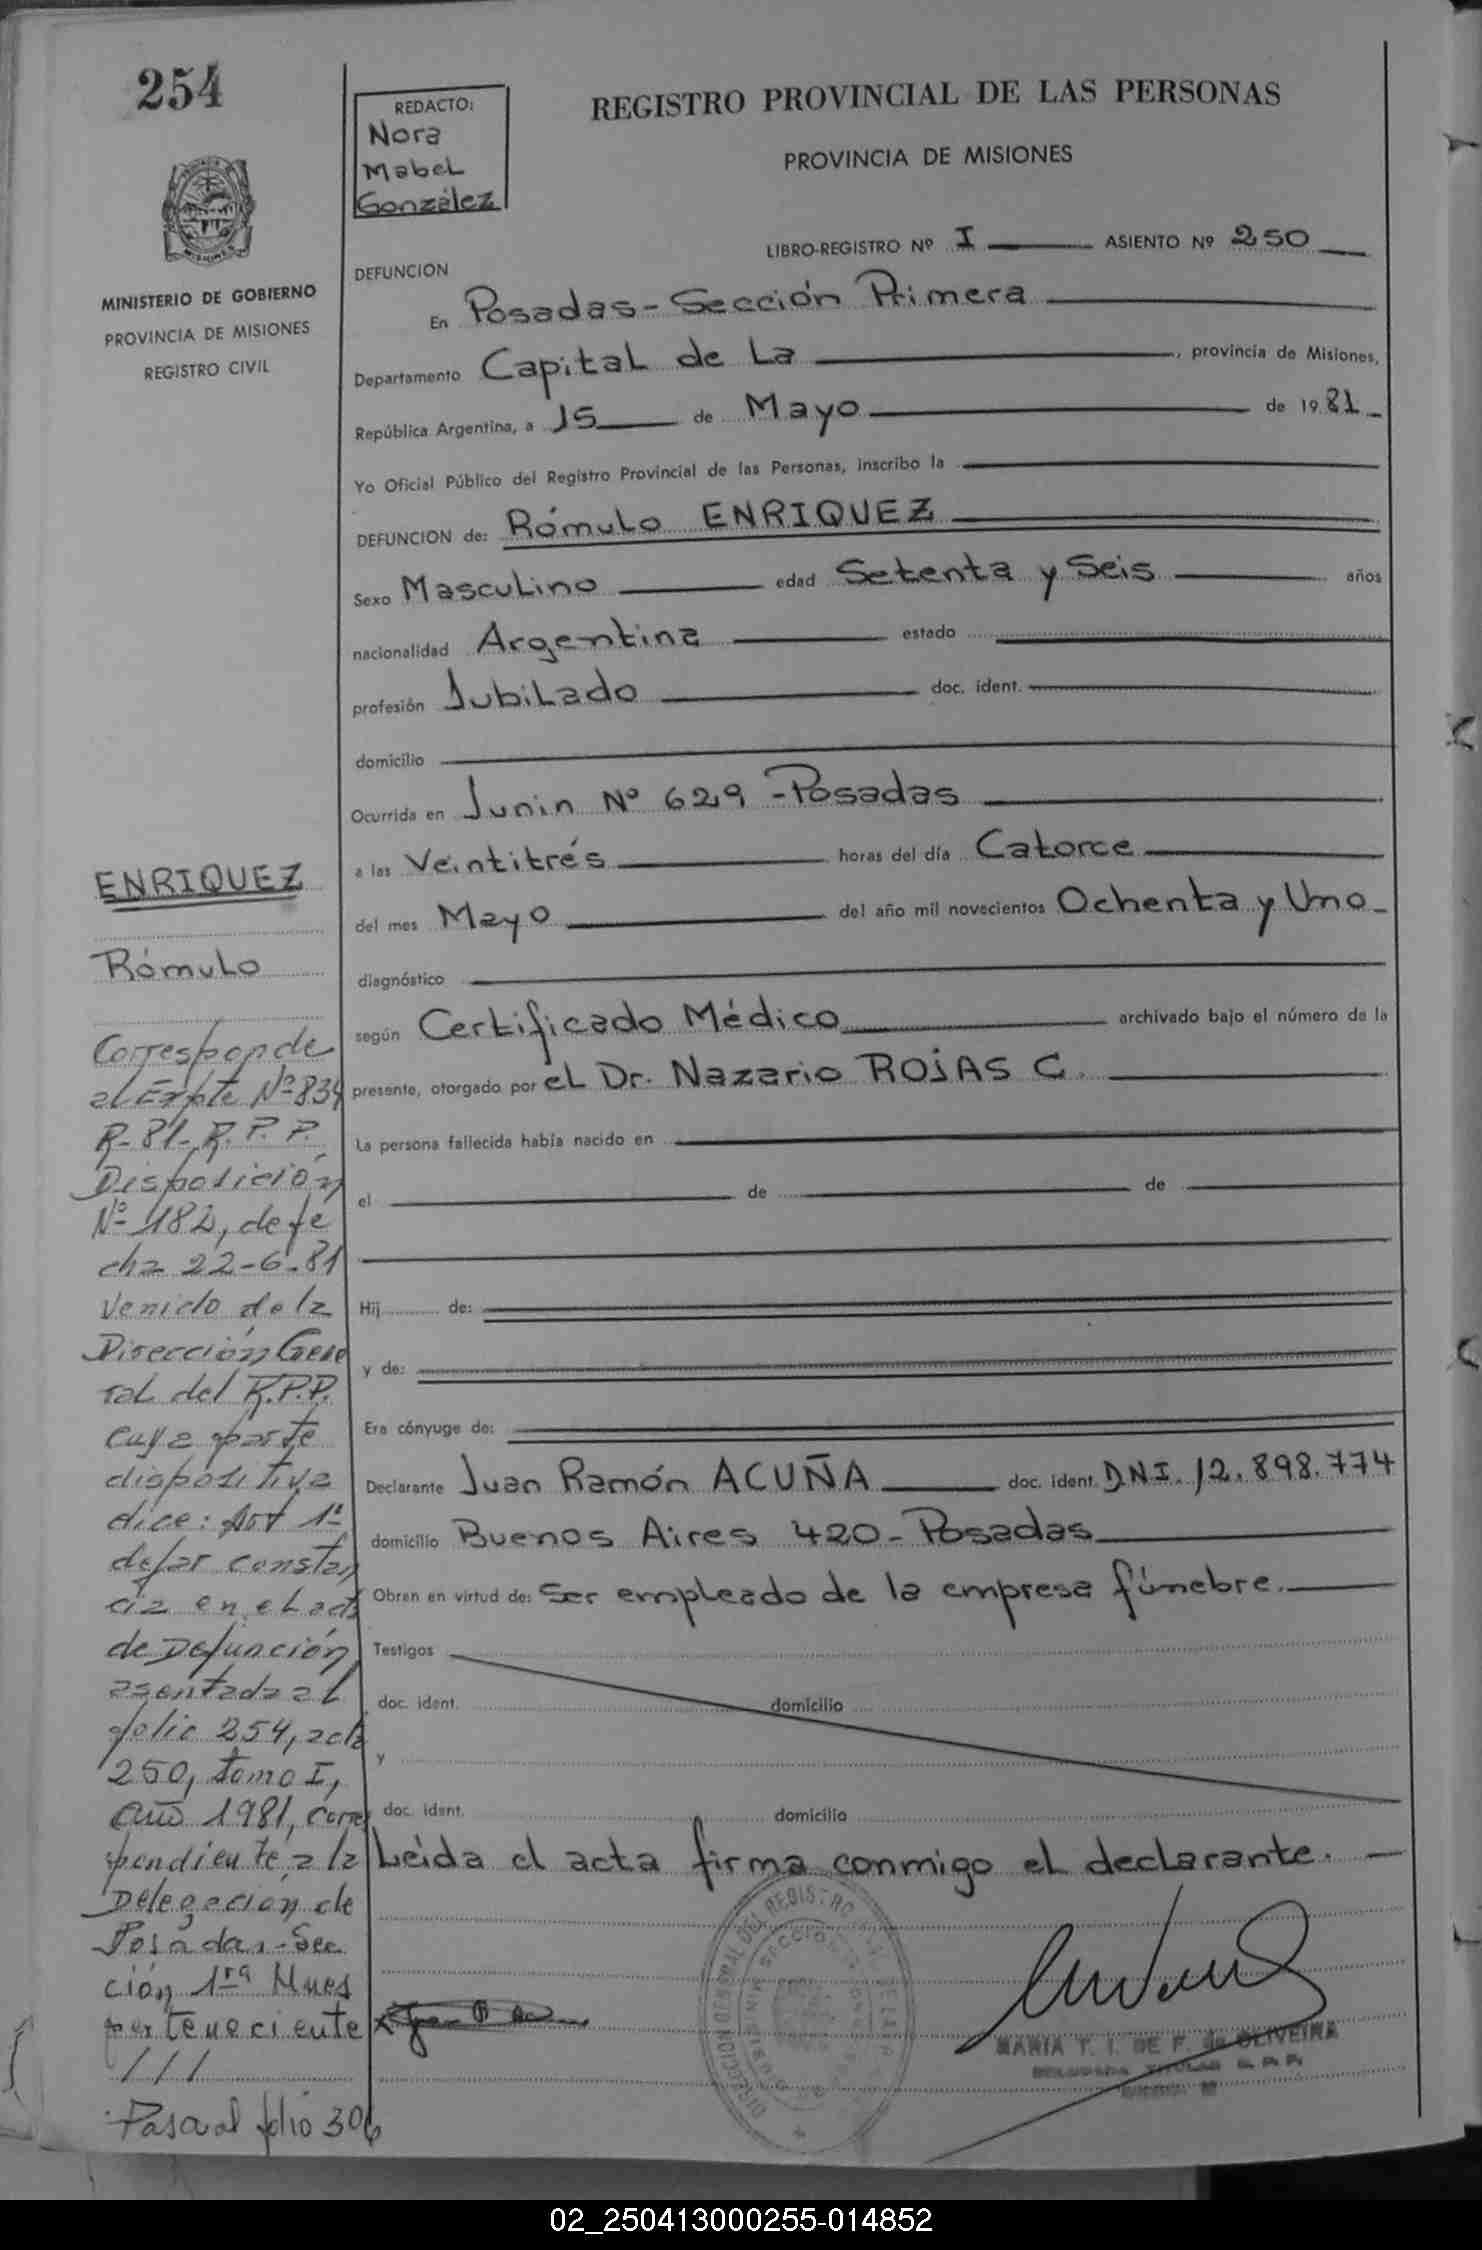 254
MINISTERIO DE GOBIERNO
PROVINCIA DE MISIONES
REGISTRO CIVIL
REDACTO:
Nora
Mabel
González
REGISTRO PROVINCIAL DE LAS PERSONAS
PROVINCIA DE MISIONES
LIBRO-REGISTRO Nº I ASIENTO Nº 250
DEFUNCION
En Posadas-Sección Primera
Departamento Capital de La, provincia de Misiones,
República Argentina, a 15 de Mayo de 1981
Yo Oficial Público del Registro Provincial de las Personas, inscribo la
DEFUNCION de: Rómulo ENRIQUEZ
Sexo Masculino edad Setenta y Seis años
nacionalidad Argentina estado
profesión Jubilado doc. ident.
domicilio
Ocurrida en Junin Nº 629 - Posadas
a las Veintitrés horas del día Catorce
del mes Mayo del año mil novecientos Ochenta y Uno-
diagnóstico
según Certificado Médico archivado bajo el número de la
presente, otorgado por el Dr. Nazario ROJAS C.
La persona fallecida había nacido en
el de de
Hij de:
y de:
Era cónyuge de:
Declarante Juan Ramón ACUÑA doc. ident. D.N.I. 12.898.774
domicilio Buenos Aires 420 - Posadas
Obran en virtud de: Ser empleado de la empresa fúnebre.
Testigos
doc. ident. domicilio
y
doc. ident. domicilio
Leída el acta firma conmigo el declarante.
MARIA T. I. DE F. de OLIVEIRA
ENRIQUEZ
Rómulo
Corresponde
al Expte Nº 834
R-81-R.P.P.
Disposición
Nº 182, de fe
cha 22-6-81
venido de la
Dirección Gene
ral del R.P.P.
cuya parte
dispositiva
dice: Art 1º
dejar constan
cia en el acta
de Defunción
asentada al
folio 254, acta
250, tomo I,
año 1981, corres
pondiente a la
Delegación de
Posadas-Sec
ción 1ra Nues
perteneciente
///
Pasa al folio 306
02_250413000255-014852